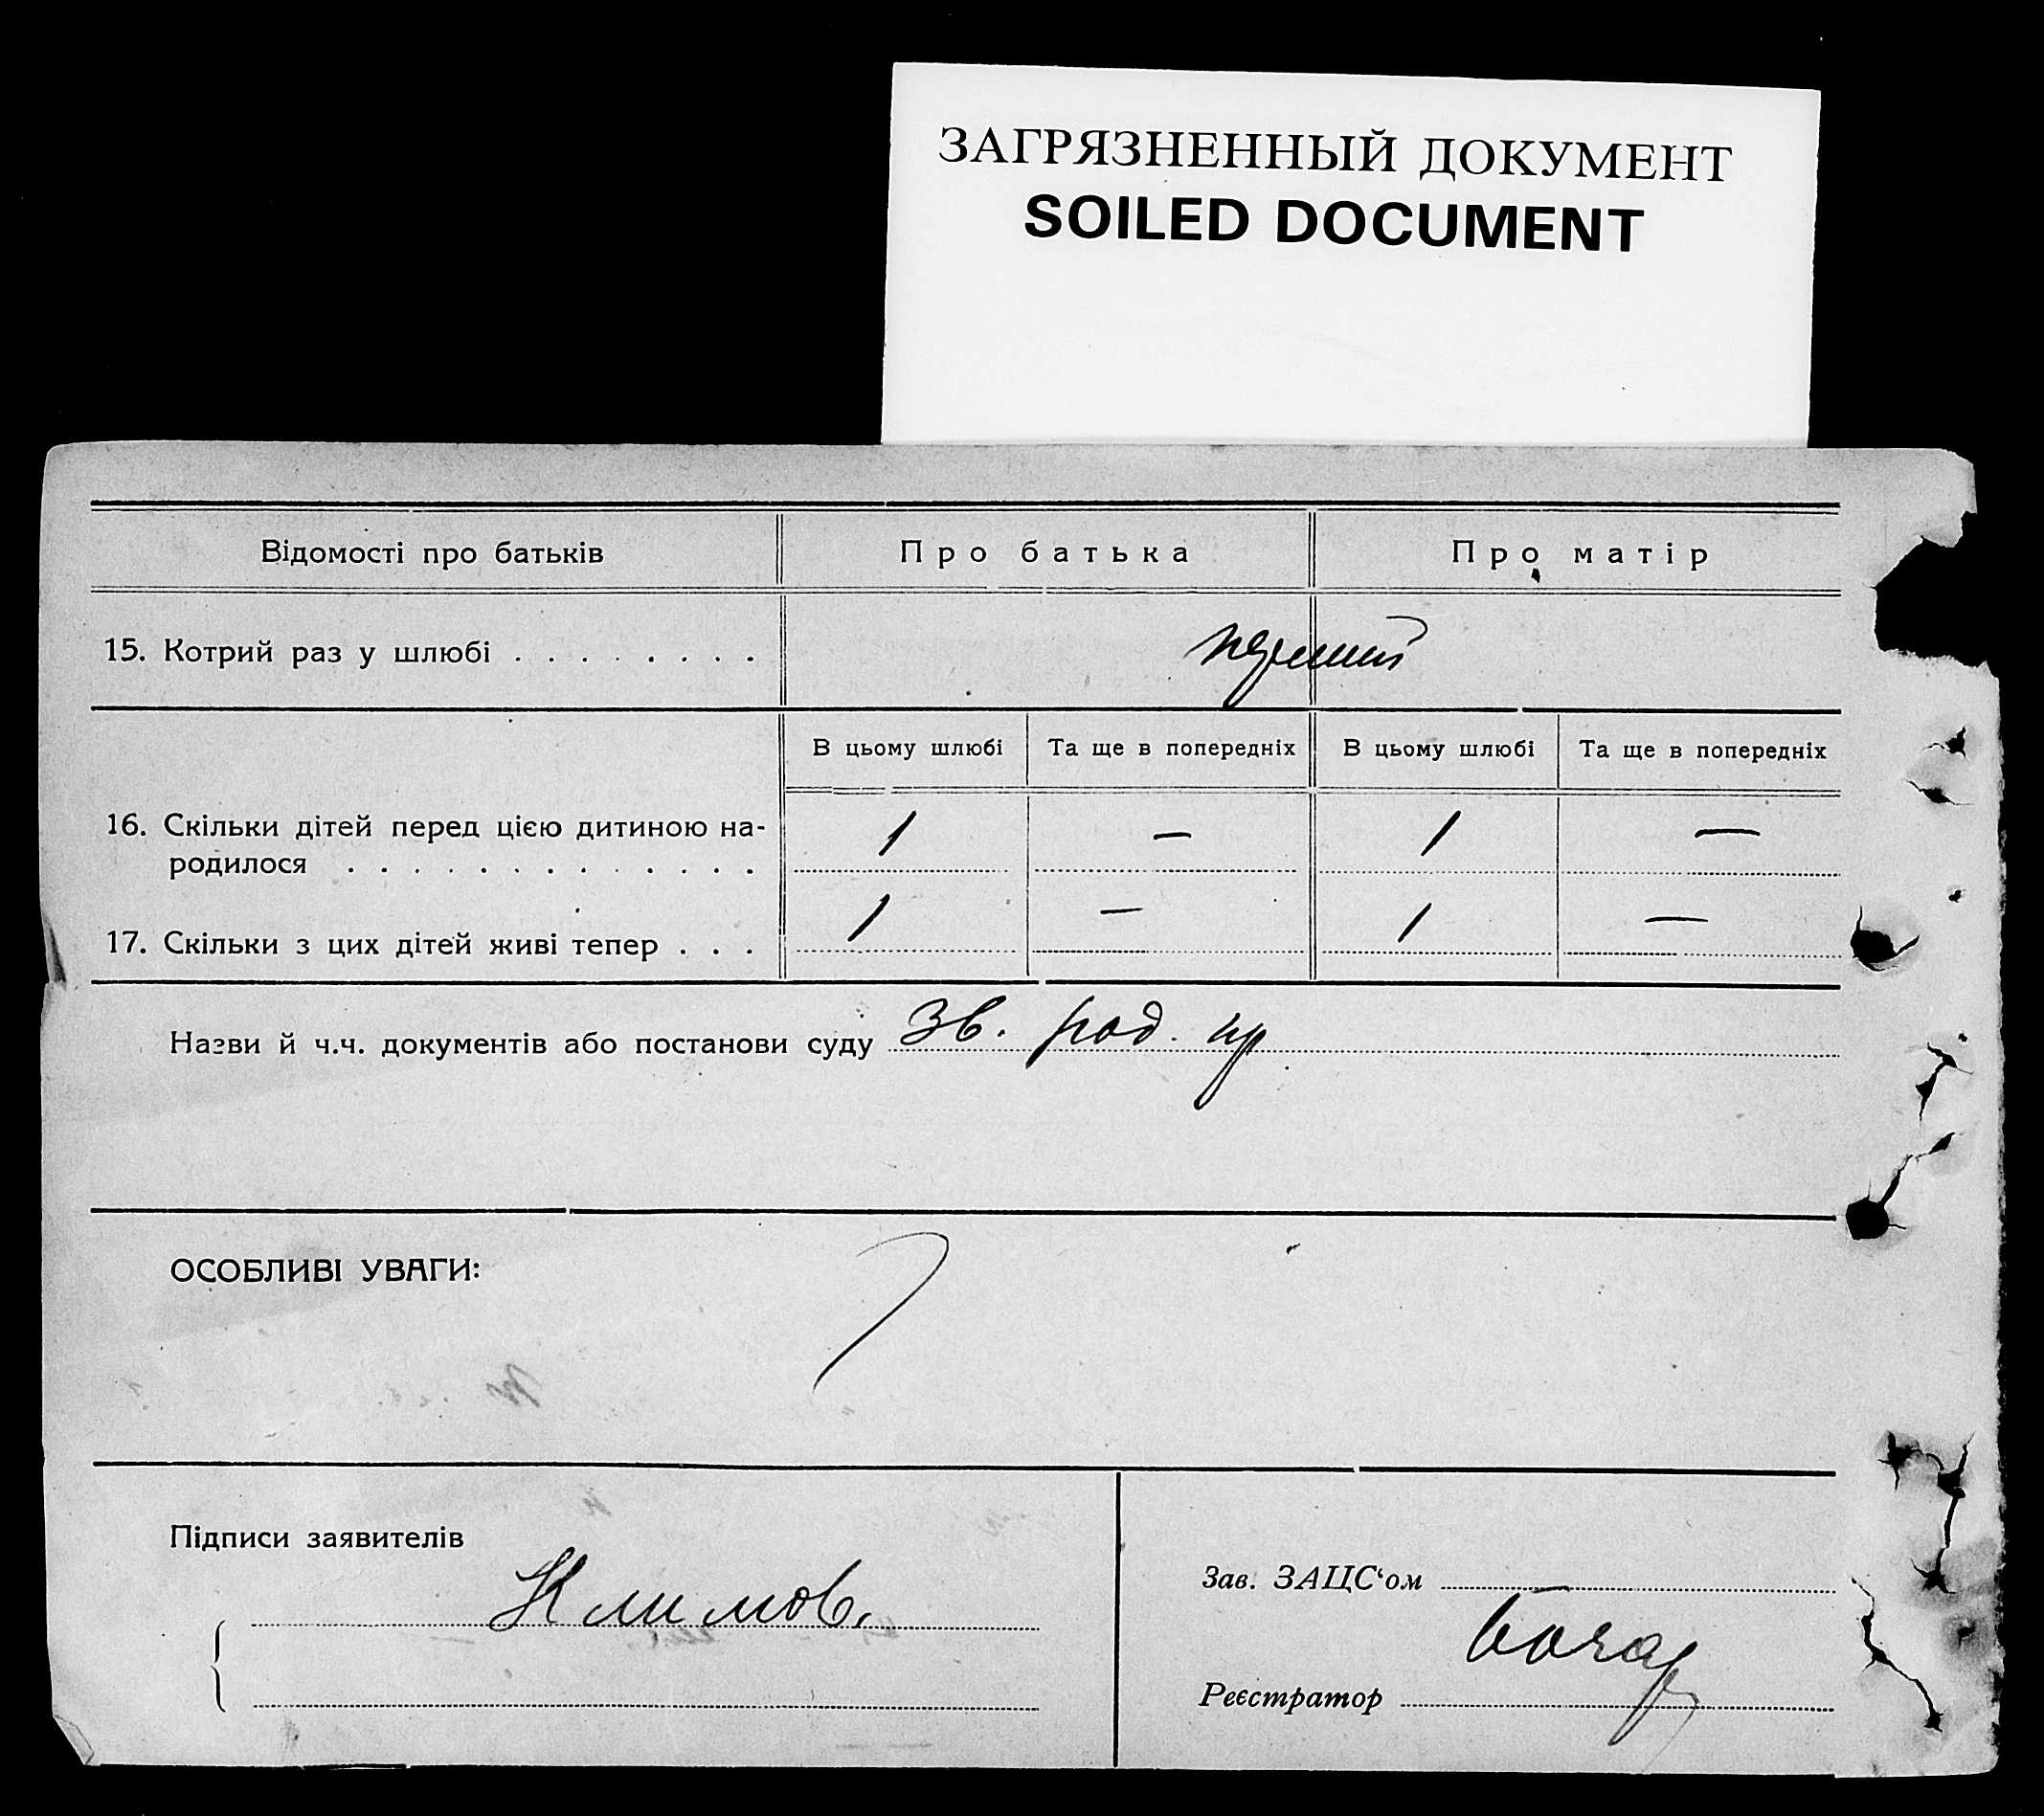 ЗАГРЯЗНЕННЫЙ ДОКУМЕНТ
SOILED DOCUMENT
Відомості про батьків Про батька Про матір
15. Котрий раз у шлюбі . . . . . . . . перший
В цьому шлюбі Та ще в попередніх В цьому шлюбі Та ще в попередніх
16. Скільки дітей перед цією дитиною на-
родилося . . . . . . . . . . . . . 1 — 1 —
17. Скільки з цих дітей живі тепер . . . 1 — 1 —
Назви й ч.ч. документів або постанови суду Зв. род. пр
ОСОБЛИВІ УВАГИ:
Підписи заявителів
Климов.
Зав. ЗАЦС‘ом
Реєстратор Бочар